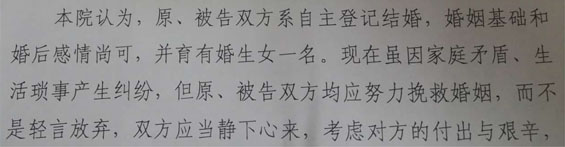 本院认为，原、被告双方系自主登记结婚，婚姻基础和
婚后感情尚可，并育有婚生女一名。现在虽因家庭矛盾、生
活琐事产生纠纷，但原、被告双方均应努力挽救婚姻，而不
是轻言放弃，双方应当静下心来，考虑对方的付出与艰辛，